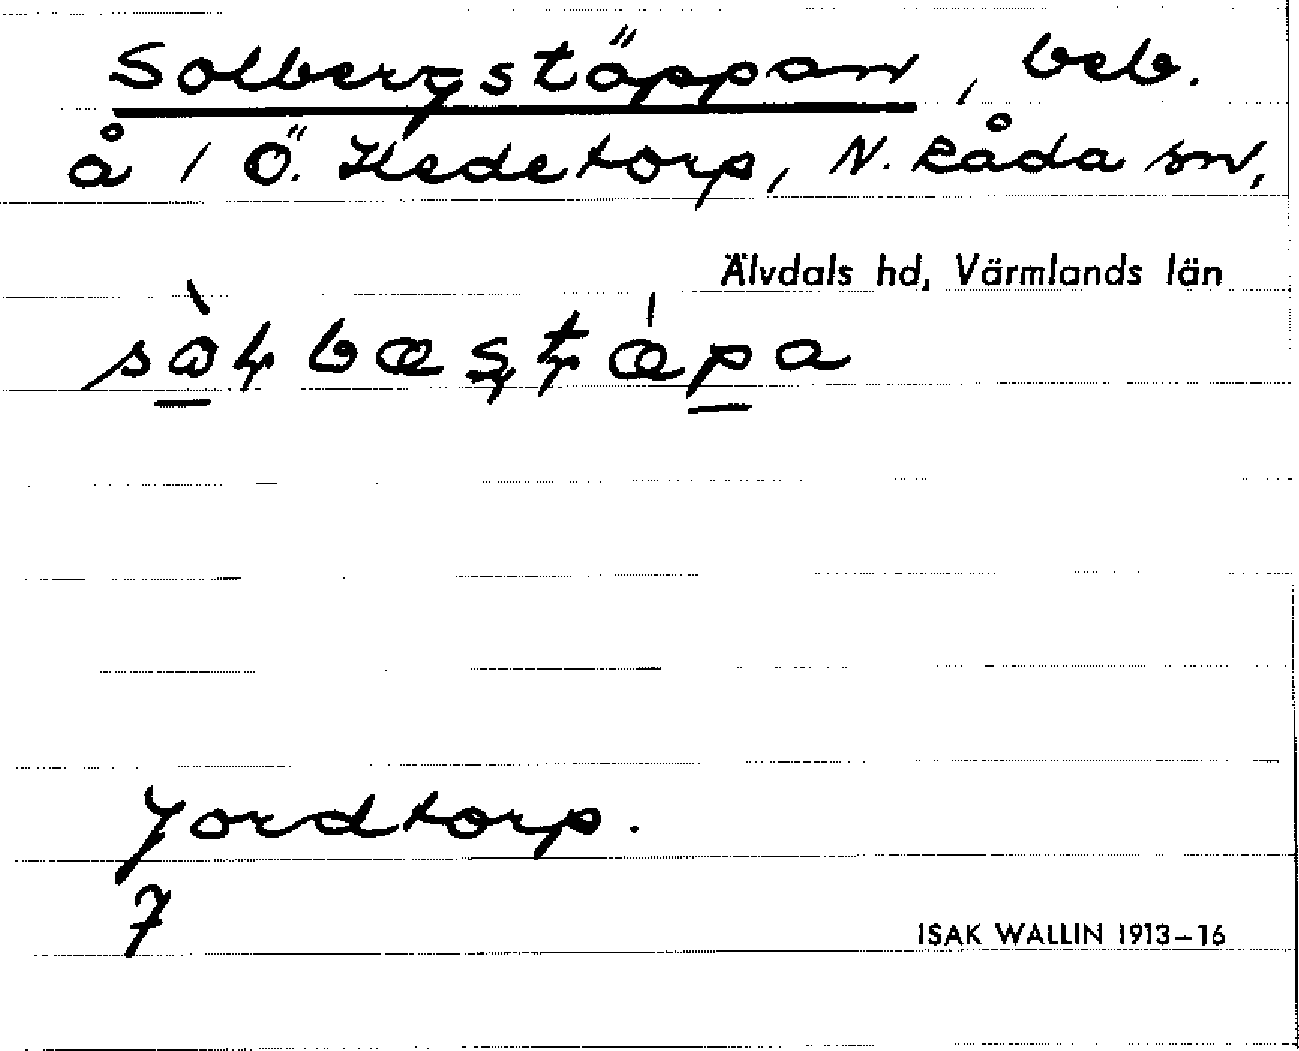 Solbergstäppan, beb.
å 1 Ö. Hedetorp, N. Råda sn,
Älvdals hd, Värmlands län
Jordtorp.
7
ISAK WALLIN 1913–16